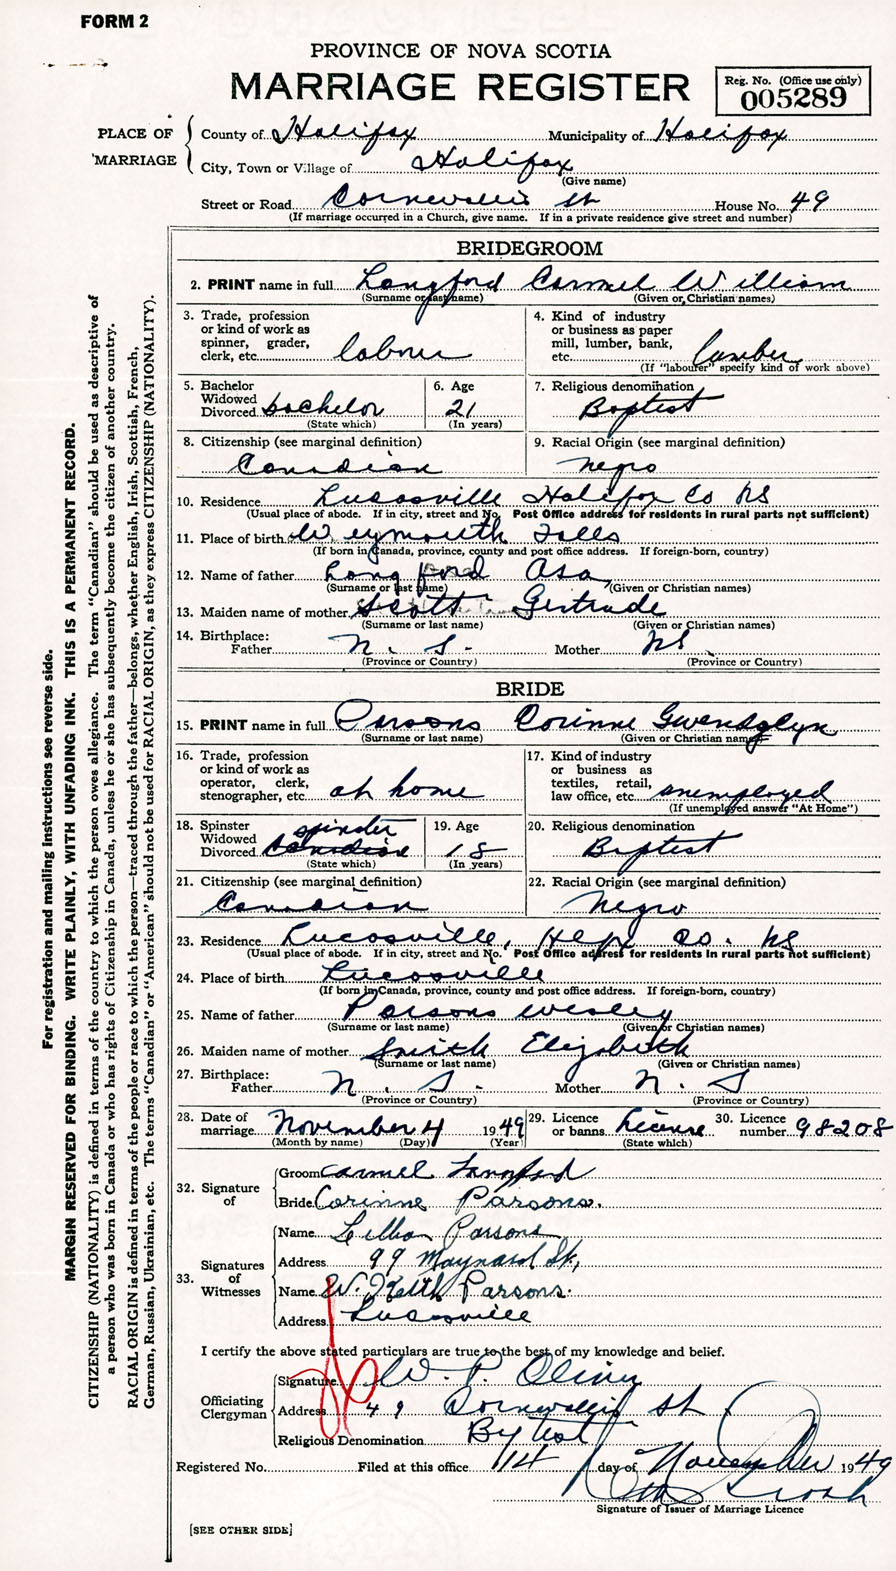 FORM 2
PROVINCE OF NOVA SCOTIA
MARRIAGE REGISTER
Reg. No. (Office use only)
005289
PLACE OF MARRIAGE
County of Halifax Municipality of Halifax
City, Town or Village of Halifax
(Give name)
Street or Road Cornwallis St House No. 49
(If marriage occurred in a Church, give name. If in a private residence give street and number)
BRIDEGROOM
2. PRINT name in full Langford Carmel William
(Surname or last name) (Given or Christian names)
3. Trade, profession or kind of work as spinner, grader, clerk, etc. laborer
4. Kind of industry or business as paper mill, lumber, bank, etc. lumber
(If "labourer" specify kind of work above)
5. Bachelor Widowed Divorced bachelor
(State which)
6. Age 21
(In years)
7. Religious denomination Baptist
8. Citizenship (see marginal definition) Canadian
9. Racial Origin (see marginal definition) negro
10. Residence Lucasville Halifax Co NS
(Usual place of abode. If in city, street and No. Post Office address for residents in rural parts not sufficient)
11. Place of birth Weymouth Falls
(If born in Canada, province, county and post office address. If foreign-born, country)
12. Name of father Langford Asa
(Surname or last name) (Given or Christian names)
13. Maiden name of mother Scott Gertrude
(Surname or last name) (Given or Christian names)
14. Birthplace: Father N. S. Mother NS
(Province or Country) (Province or Country)
BRIDE
15. PRINT name in full Parsons Corinne Gwendolyn
(Surname or last name) (Given or Christian names)
16. Trade, profession or kind of work as operator, clerk, stenographer, etc. at home
17. Kind of industry or business as textiles, retail, law office, etc. unemployed
(If unemployed answer "At Home")
18. Spinster Widowed Divorced spinster Canadian
(State which)
19. Age 18
(In years)
20. Religious denomination Baptist
21. Citizenship (see marginal definition) Canadian
22. Racial Origin (see marginal definition) Negro
23. Residence Lucasville, Hfx Co. NS
(Usual place of abode. If in city, street and No. Post Office address for residents in rural parts not sufficient)
24. Place of birth Lucasville
(If born in Canada, province, county and post office address. If foreign-born, country)
25. Name of father Parsons Wesley
(Surname or last name) (Given or Christian names)
26. Maiden name of mother Smith Elizabeth
(Surname or last name) (Given or Christian names)
27. Birthplace: Father N. S. Mother N. S
(Province or Country) (Province or Country)
28. Date of marriage November 4 1949
(Month by name) (Day) (Year)
29. Licence or banns License
(State which)
30. Licence number 98208
32. Signature of
Groom Carmel Langford
Bride Corinne Parsons.
33. Signatures of Witnesses
Name Lillian Parsons
Address 99 Maynard St,
Name W. Keith Parsons.
Address Lucasville
I certify the above stated particulars are true to the best of my knowledge and belief.
Officiating Clergyman
Signature W. P. Oliver
Address 49 Cornwallis St
Religious Denomination Baptist
Registered No. Filed at this office 14 day of November 1949
Signature of Issuer of Marriage Licence
[SEE OTHER SIDE]
For registration and mailing instructions see reverse side.
MARGIN RESERVED FOR BINDING. WRITE PLAINLY, WITH UNFADING INK. THIS IS A PERMANENT RECORD.
CITIZENSHIP (NATIONALITY) is defined in terms of the country to which the person owes allegiance. The term "Canadian" should be used as descriptive of
a person who was born in Canada or who has rights of Citizenship in Canada, unless he or she has subsequently become the citizen of another country.
RACIAL ORIGIN is defined in terms of the people or race to which the person—traced through the father—belongs, whether English, Irish, Scottish, French,
German, Russian, Ukrainian, etc. The terms "Canadian" or "American" should not be used for RACIAL ORIGIN, as they express CITIZENSHIP (NATIONALITY).